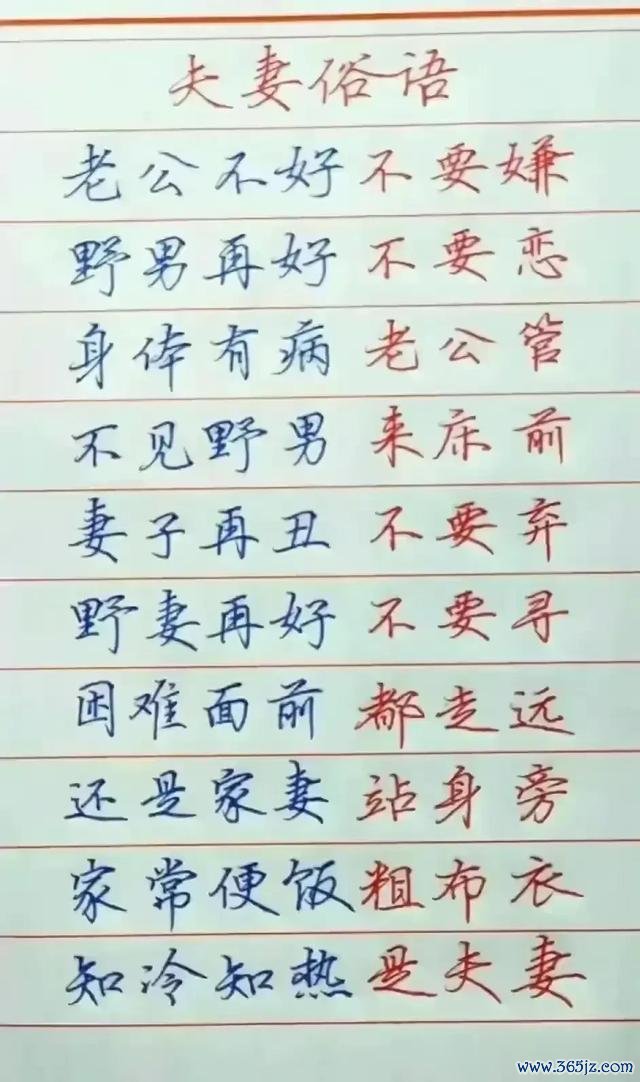 夫妻俗语
老公不好不要嫌
野男再好不要恋
身体有病老公管
不见野男来床前
妻子再丑不要弃
野妻再好不要寻
困难面前都走远
还是家妻站身旁
家常便饭粗布衣
知冷知热是夫妻
www.365jz.com